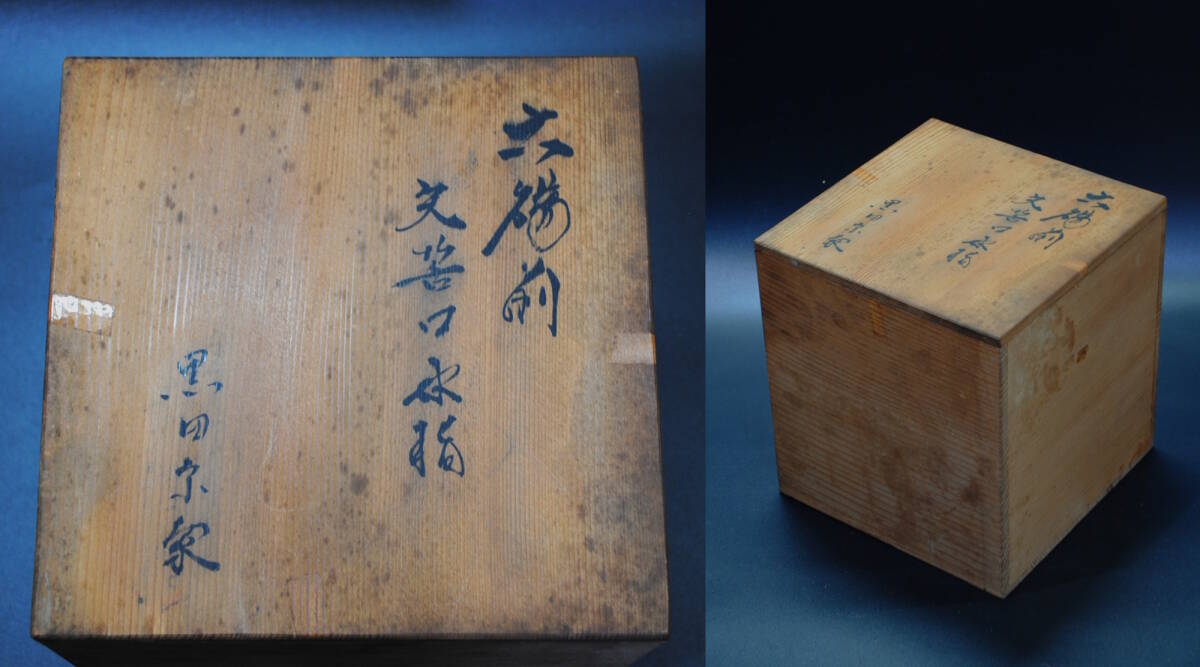 古備前
矢筈口水指
黒田宗
古備前
矢筈口水指
黒田宗